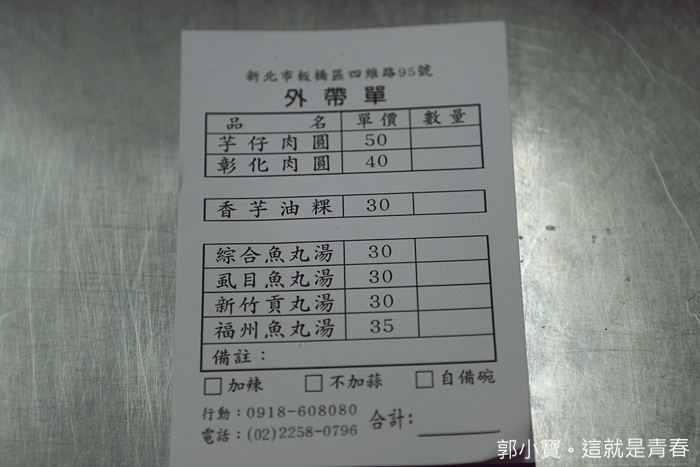 新北市板橋區四維路95號
外帶單
品名 單價 數量
芋仔肉圓 50
彰化肉圓 40
香芋油粿 30
綜合魚丸湯 30
虱目魚丸湯 30
新竹貢丸湯 30
福州魚丸湯 35
備註：
加辣 不加蒜 自備碗
行動：0918-608080
電話：(02)2258-0796 合計：
郭小寶。這就是青春